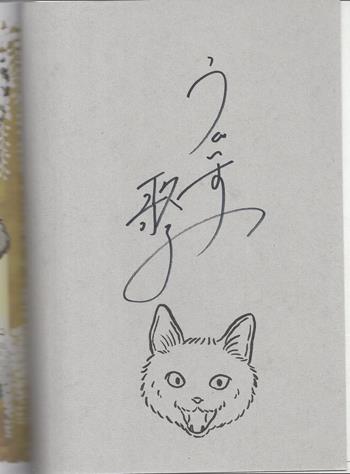 うぐいす
歌子